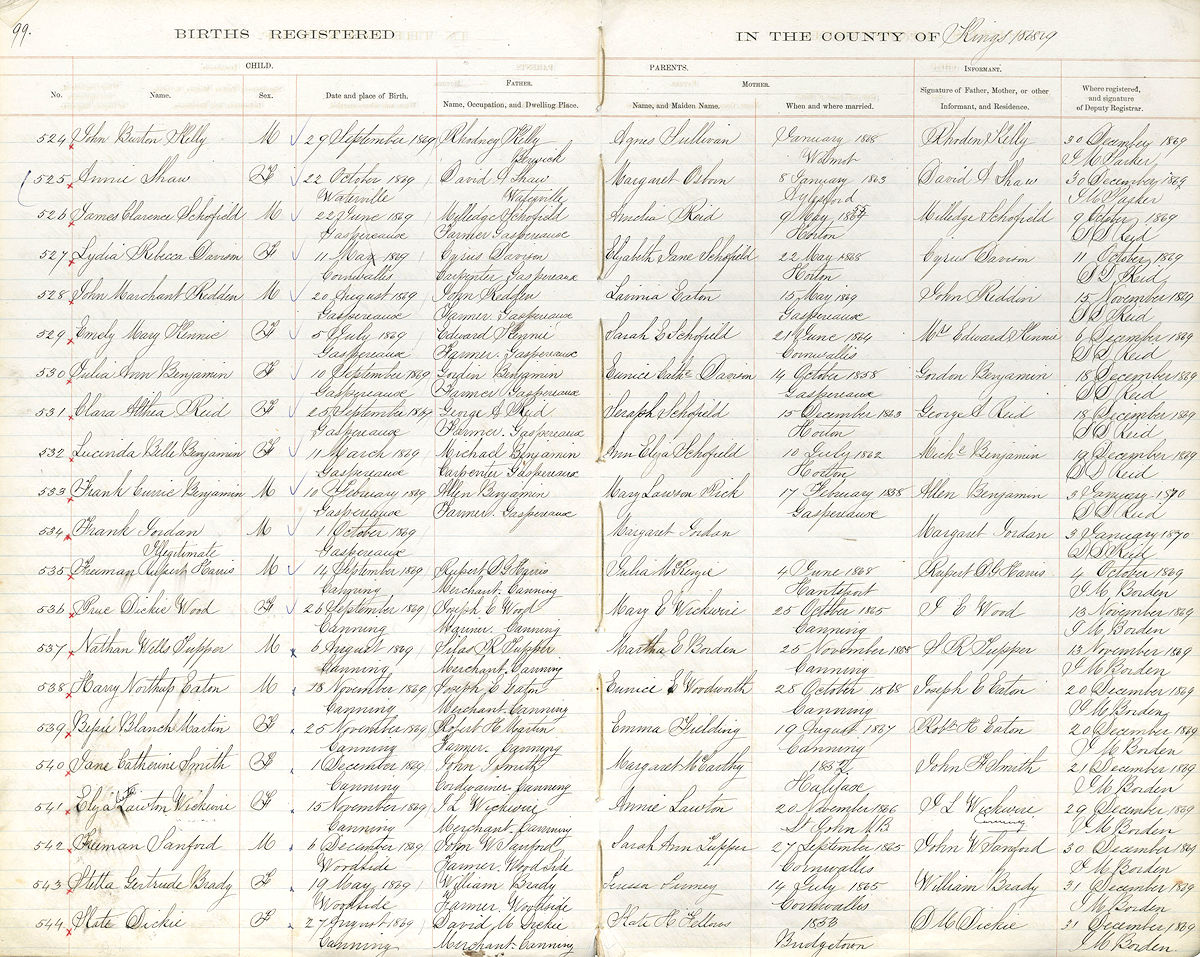 99.
BIRTHS REGISTERED IN THE COUNTY OF Kings 1869
CHILD. PARENTS. INFORMANT.
FATHER. MOTHER.
No. Name. Sex. Date and place of Birth. Name, Occupation, and Dwelling Place. Name, and Maiden Name. When and where married. Signature of Father, Mother, or other Informant, and Residence. Where registered, and signature of Deputy Registrar.
524 John Burton Kelly M 29 September 1869 Rhodney Kelly Agnes Sullivan January 1868 Rhoden Kelly 30 December 1869
Berwick Wilmot J M Parker
525 Annie Shaw F 22 October 1869 David A Shaw Margaret Osborn 8 January 1863 David A Shaw 30 December 1869
Waterville Waterville Aylesford J M Parker
526 James Clarence Schofield M 22 June 1869 Milledge Schofield Amelia Reid 9 May 1864 55 Milledge Schofield 9 October 1869
Gaspereaux Farmer Gaspereaux Horton S S Reid
527 Lydia Rebecca Davison F 11 May 1869 Cyrus Davison Elizabeth Jane Schofield 22 May 1868 Cyrus Davison 11 October 1869
Cornwallis Carpenter Gaspereaux Horton S S Reid
528 John Marchant Redden M 20 August 1869 John Redden Lavinia Eaton 15 May 1869 John Reddin 15 November 1869
Gaspereaux Farmer. Gaspereaux Gaspereaux S S Reid
529 Emely Mary Kennie F 5 July 1869 Edward Kennie Sarah E Schofield 21 June 1864 Mrs Edward Kennie 6 December 1869
Gaspereaux Farmer. Gaspereaux Cornwallis S S Reid
530 Julia Ann Benjamin F 10 September 1869 Gorden Benjamin Eunice Cathe Davison 14 October 1858 Gordon Benjamin 18 December 1869
Gaspereaux Farmer Gaspereaux Gaspereaux S S Reid
531 Clara Althea Reid F 25 September 1869 George A Reid Seraph Schofield 15 December 1863 George A Reid 18 December 1869
Gaspereaux Farmer. Gaspereaux Horton S S Reid
532 Lucinda Belle Benjamin F 11 March 1869 Michael Benjamin Ann Eliza Schofield 10 July 1862 Michl Benjamin 19 December 1869
Gaspereaux Carpenter Gaspereaux Horton S S Reid
533 Frank Currie Benjamin M 10 February 1869 Allen Benjamin Mary Lawson Rick 17 February 1858 Allen Benjamin 3 January 1870
Gaspereaux Farmer. Gaspereaux Gaspereaux S S Reid
534 Frank Jordan M 1 October 1869 Margaret Jordan Margaret Jordan 3 January 1870
Illegitimate Gaspereaux S S Reid
535 Freeman Rupert Harris M 14 September 1869 Rupert D G Harris Julia McKenzie 4 June 1868 Rupert D G Harris 4 October 1869
Canning Merchant. Canning Hantsport J M Borden
536 Prue Dickie Wood F 26 September 1869 Joseph E Wood Mary E Wickwire 25 October 1865 J E Wood 13 November 1869
Canning Mariner. Canning Canning J M Borden
537 Nathan Wells Tupper M 6 August 1869 Silas R Tupper Martha E Borden 25 November 1868 S R Tupper 13 November 1869
Canning Merchant. Canning Canning J M Borden
538 Harry Northup Eaton M 18 November 1869 Joseph E Eaton Eunice E Woodworth 28 October 1868 Joseph E Eaton 20 December 1869
Canning Merchant. Canning Canning J M Borden
539 Bessie Blanch Martin F 25 November 1869 Robert H Martin Emma Fielding 19 August 1867 Robt H Eaton 20 December 1869
Canning Farmer. Canning Canning J M Borden
540 Jane Catherine Smith F 1 December 1869 John Smith Margaret McCarthy 1857 John H Smith 21 December 1869
Canning Cordwainer Canning Halifax J M Borden
541 Eliza Lawton Wickwire F 15 November 1869 J L Wickwire Annie Lawton 20 November 1866 J L Wickwire 29 December 1869
Canning Merchant. Canning St John N B Canning J M Borden
542 Freeman Sanford M 6 December 1869 John W Sanford Sarah Ann Tupper 27 September 1865 John W Sanford 30 December 1869
Woodside Farmer. Wood Side Cornwallis J M Borden
543 Stella Gertrude Brady F 19 May 1869 William Brady 14 July 1865 William Brady 31 December 1869
Woodside Farmer. Woodside Cornwallis J M Borden
544 Kate Dickie F 27 August 1869 David M Dickie Kate H Fellows 1853 D M Dickie 31 December 1869
Canning Merchant. Canning Bridgetown J M Borden.